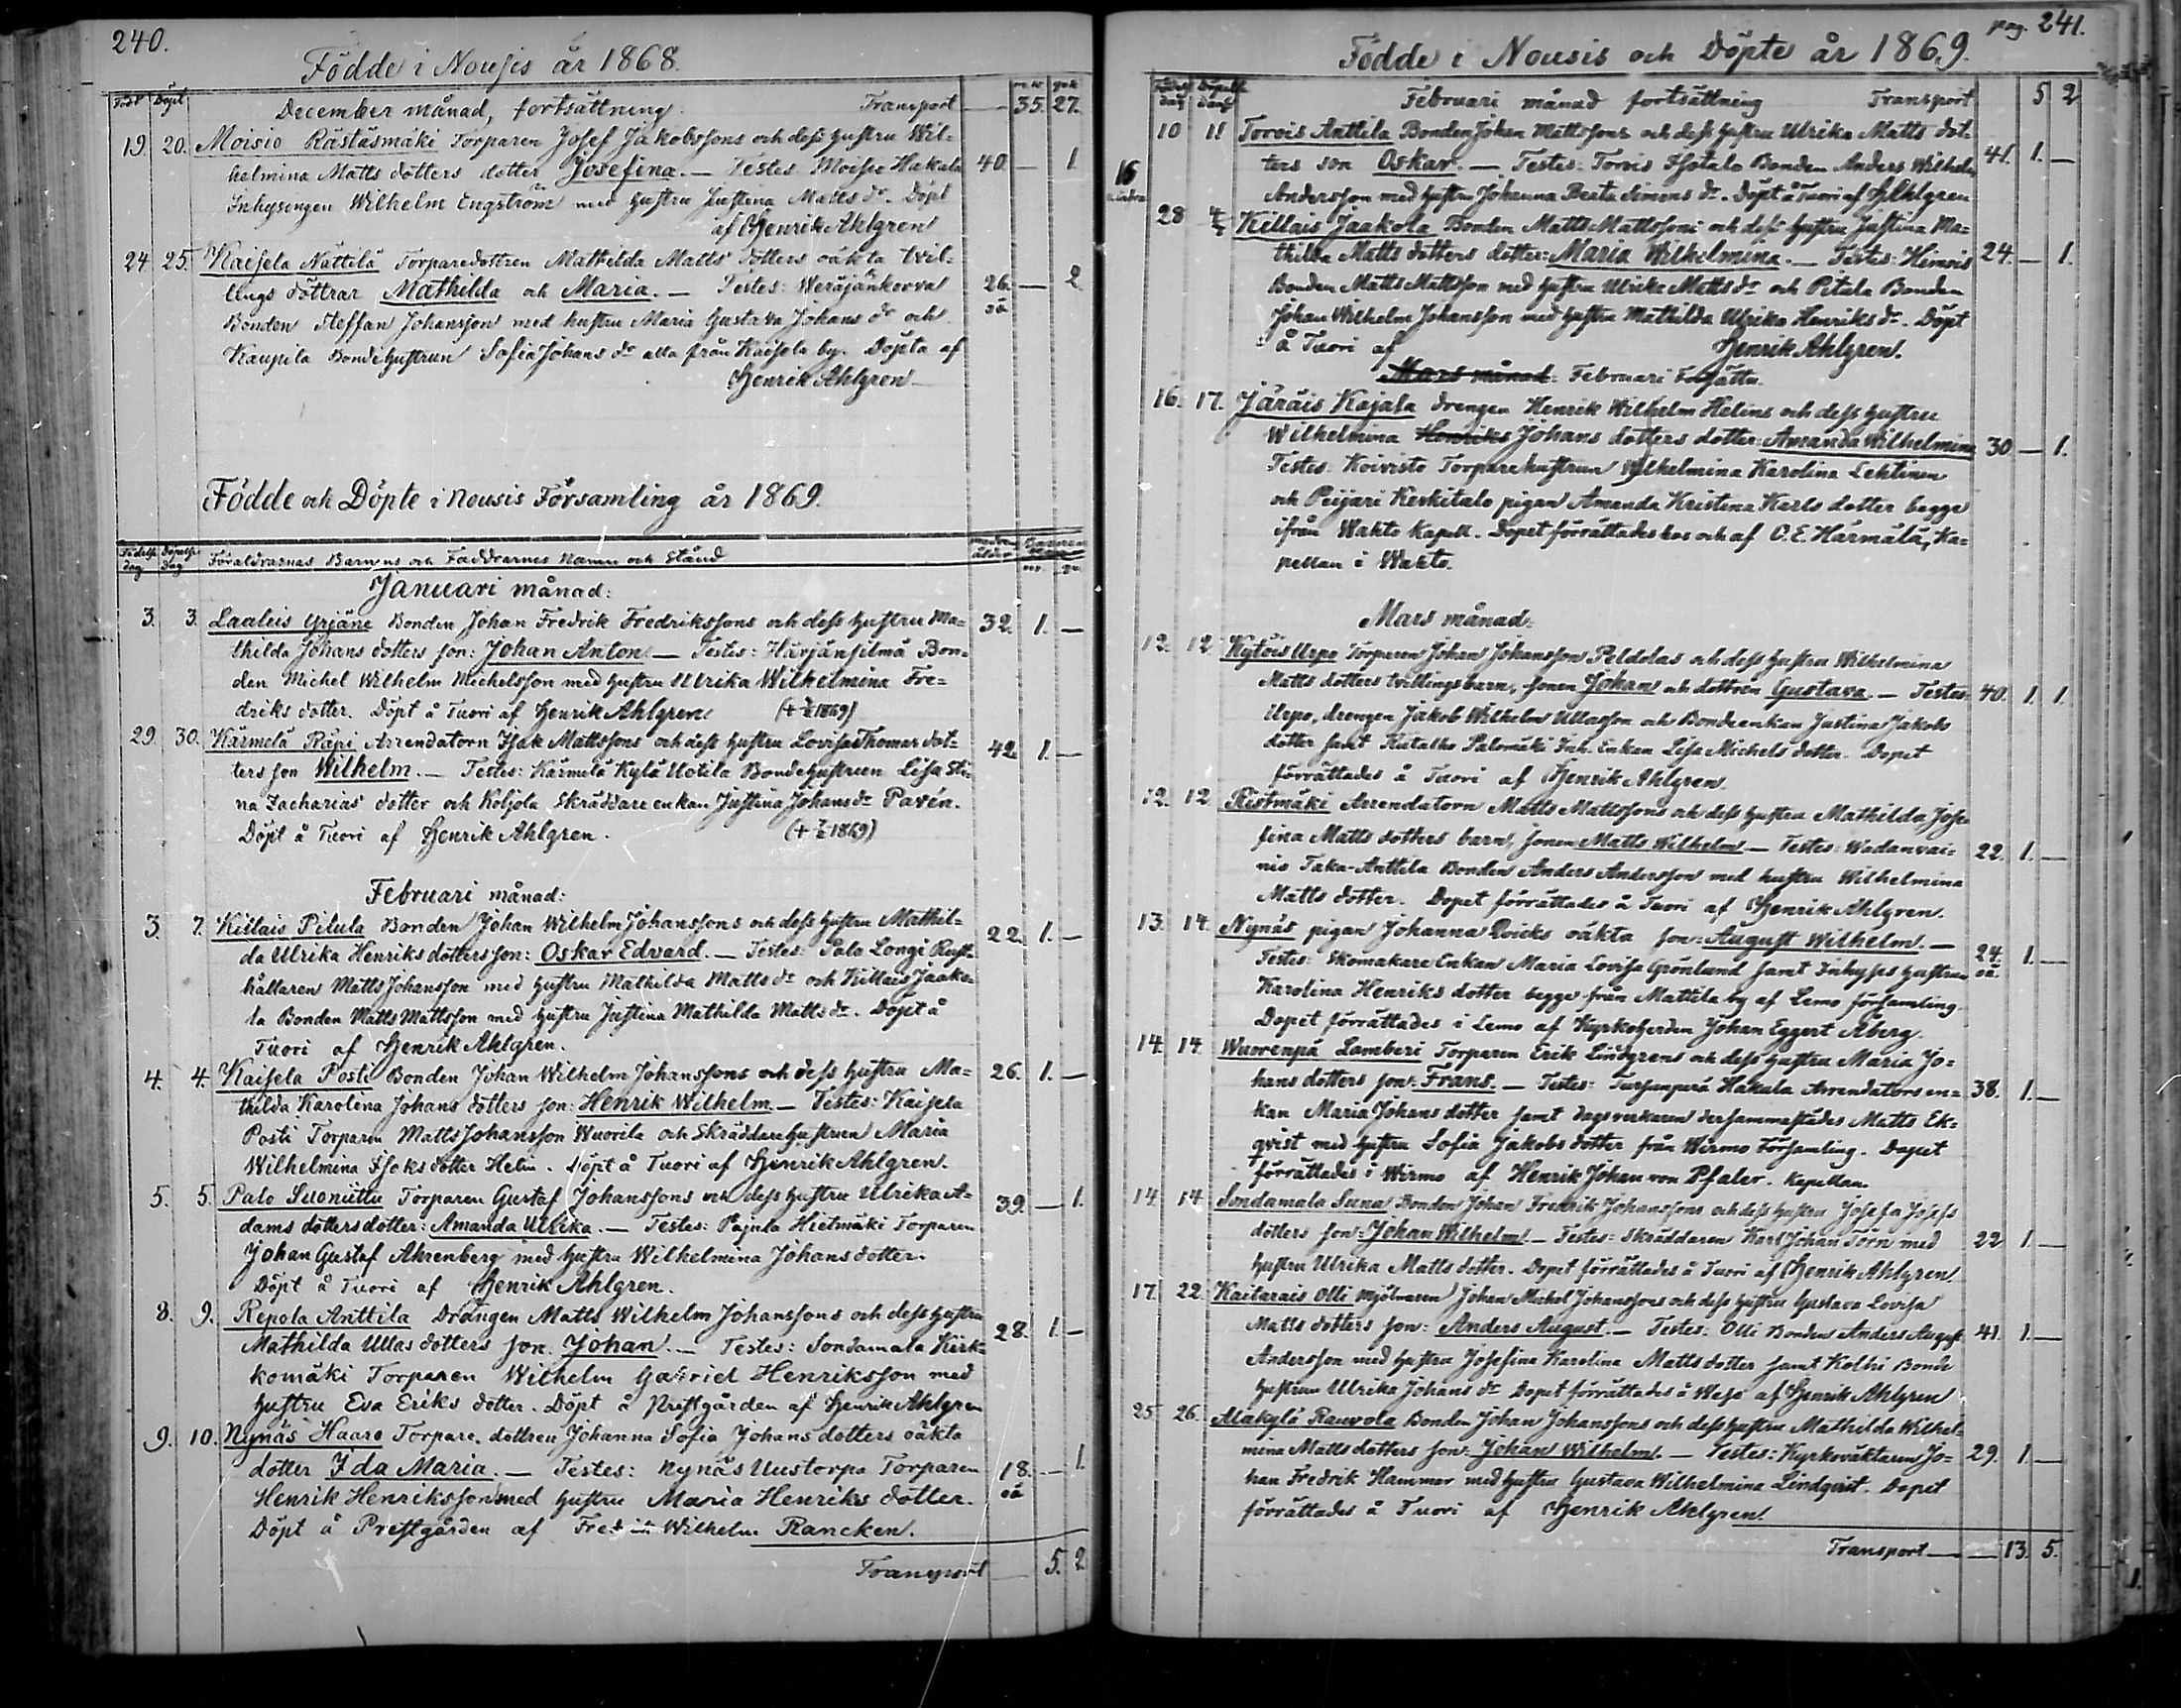 240.
Födde i Nousis år 1868.
Född Döpt
December månad, fortsättning. Transport — 35. 27.
19. 20. Moisio Rästäsmäki Torparen Josef Jakobssons och dess hustru Wil-
helmina Matts dotters dotter Josefina. — Testes Moisio Hakala 40. — 1.
Inhysingen Wilhelm Engström med hustru Justina Matts dr. Döpt
af Henrik Ahlgren
24. 25. Kaisela Nättilä Torparedottren Mathilda Matts dotters oäkta tvil-
lings döttrar Mathilda och Maria. — Testes: Weräjänkorva 26. — 2.
Bonden Steffan Johansson med hustru Maria Gustava Johans dr och oä
Kaupila Bondehustrun Sofia Johans dr alla från Kaisela by. Döpta af
Henrik Ahlgren
Födde och Döpte i Nousis Församling år 1869.
Födelse dag Döpelse dag Föräldrarnas Barnens och Faddrarnes Namn och Stånd
Januari månad:
3. 3. Laaleis Yrjäne Bonden Johan Fredrik Fredrikssons och dess hustru Ma- 32. 1. —
thilda Johans dotters son: Johan Anton — Testes: Härjänsilmä Bon-
den Michel Wilhelm Michelsson med hustru Ulrika Wilhelmina Fre-
driks dotter. Döpt å Tuori af Henrik Ahlgren
29. 30. Kärmelä Räpi Arrendatorn Isak Mattssons och dess hustru Lovisa Thomas dot- 42. 1. —
ters son Wilhelm. — Testes: Kärmelä Kylä Uotila Bondehustrun Lisa Sti-
na Zacharias dotter och Koljola Skräddare enkan Justina Johans dr Pavén.
Döpt å Tuori af Henrik Ahlgren.
Februari månad:
3. 7. Killais Pitula Bonden Johan Wilhelm Johanssons och dess hustru Mathil- 22. 1. —
da Ulrika Henriks dotters son: Oskar Edvard. — Testes: Palo Longi Rust-
hållaren Matts Johansson med hustru Mathilda Matts dr och Killais Jaako-
la Bonden Matts Mattsson med hustru Justina Mathilda Matts dr. Döpt å
Tuori af Henrik Ahlgren.
4. 4. Kaisela Posti Bonden Johan Wilhelm Johanssons och dess hustru Ma- 26. 1. —
thilda Karolina Johans dotters son: Henrik Wilhelm — Testes: Kaisela
Posti Torparen Matts Johansson Wuorila och Skräddarehustrun Maria
Wilhelmina Isaks dotter Helin. Döpt å Tuori af Henrik Ahlgren.
5. 5. Palo Suoniittu Torparen Gustaf Johanssons och dess hustru Ulrika A- 39. — 1.
dams dotters dotter: Amanda Ulrika. — Testes: Pajula Hietmäki Torparen
Johan Gustaf Ahrenberg med hustru Wilhelmina Johans dotter.
Döpt å Tuori af Henrik Ahlgren.
8. 9. Repola Anttila Drängen Matts Wilhelm Johanssons och dess hustru
Mathilda Ullas dotters son: Johan. — Testes: Sondamala Kirk- 28. 1. —
komäki Torparen Wilhelm Gabriel Henriksson med
hustru Eva Eriks dotter. Döpt å Prestgården af Henrik Ahlgren
9. 10. Nynäs Haaro Torpare dottren Johanna Sofia Johans dotters oäkta
dotter Ida Maria. — Testes: Nynäs Uustorpa Torparen 18. — 1.
Henrik Henriksson med hustru Maria Henriks dotter. oä
Döpt å Prestgården af Fredrik Wilhelm Rancken.
Transport — 5. 2.
pag. 241.
Födde i Nousis och Döpte år 1869.
Födelse dag Döpelse dag
Februari månad fortsättning Transport 5 2
10 11 Torois Anttila Bonden Johan Mattssons och dess hustru Ulrika Matts dot-
ters son Oskar. — Testes: Torois Isotalo Bonden Anders Wilhelm 41. 1. —
16
Andersson med hustru Johanna Beata Simons dr. Döpt å Tuori af H. Ahlgren
28 Killais Jaakola Bonden Matts Mattssons och dess hustru Justina Ma-
thilda Matts dotters dotter: Maria Wilhelmina. — Testes: Himois 24. — 1.
Bonden Matts Mattsson med hustru Ulrika Matts dr och Pitula Bonden
Johan Wilhelm Johansson med hustru Mathilda Ulrika Henriks dr. Döpt
å Tuori af Henrik Ahlgren.
Mars månad: Februari Forsättn.
16. 17. Järäis Kajala drengen Henrik Wilhelm Helins och dess hustru
Wilhelmina Henriks Johans dotters dotter: Amanda Wilhelmina 30 — 1.
Testes: Koivisto Torparehustrun Wilhelmina Karolina Lehtinen
och Peijari Keskitalo pigan Amanda Kristina Karls dotter begge
ifrån Wahto Kapell. Dopet förrättades hos och af C. E. Härmälä, Ka-
pellan i Wahto.
Mars månad:
12. 12. Kylöis Uspo Torparen Johan Johansson Peldolas och dess hustru Wilhelmina
Matts dotters tvillingsbarn, sonen Johan och dottren Gustava. — Testes: 40. 1. 1.
Uspo, drengen Jakob Wilhelm Ullasson och Bondeenkan Justina Jakobs
dotter samt Palomäki Inh. Enkan Lisa Michels dotter. Dopet
förrättades å Tuori af Henrik Ahlgren.
12. 12. Ristmäki Arrendatorn Matts Mattssons och dess hustru Mathilda Jose-
fina Matts dotters barn, sonen Matts Wilhelm — Testes: Wadanvai- 22. 1. —
nio Taka-Anttila Bonden Anders Andersson med hustru Wilhelmina
Matts dotter. Dopet förrättades å Tuori af Henrik Ahlgren.
13. 14. Nynäs pigan Johanna Qvicks oäkta son: August Wilhelm. —
Testes: Skomakare Enkan Maria Lovisa Grönlund samt Inhyses hustrun 24. oä. 1. —
Karolina Henriks dotter begge från Mattila by af Lemo församling.
Dopet förrättades i Lemo af Kyrkoherden Johan Eggert Åberg.
14. 14. Wuorenpä Lamberi Torparen Erik Lindgrens och dess hustru Maria Jo-
hans dotters son: Frans. — Testes: Tursunperä Hakala Arrendators en- 38. 1. —
kan Maria Johans dotter samt dagsverkaren dersammastädes Matts Ek-
qvist med hustru Sofia Jakobs dotter från Wirmo Församling. Dopet
förrättades i Wirmo af Henrik Johan von Pfaler. Kapellan.
14. 14. Sondamala Suna Bonden Johan Fredrik Johanssons och dess hustru Josefa Josefs
dotters son: Johan Wilhelm — Testes: Skräddaren Karl Johan Törn med 22 1. —
hustru Ulrika Matts dotter. Dopet förrättades å Tuori af Henrik Ahlgren
17. 22. Kaitarais Olli Mjölnaren Johan Michel Johanssons och dess hustru Gustava Lovisa
Matts dotters son: Anders August. — Testes: Olli Bonden Anders August 41. 1. —
Andersson med hustru Josefina Karolina Matts dotter samt Kolhi Bonde
hustrun Ulrika Johans dr Dopet förrättades å af Henrik Ahlgren
25. 26. Alakylä Rauvola Bonden Johan Johanssons och dess hustru Mathilda Wilhel-
mina Matts dotters son: Johan Wilhelm. — Testes: Kyrkoväktaren Jo- 29. 1. —
han Fredrik Hammar med hustru Gustava Wilhelmina Lindqvist. Dopet
förrättades å Tuori af Henrik Ahlgren.
Transport — 13. 5.